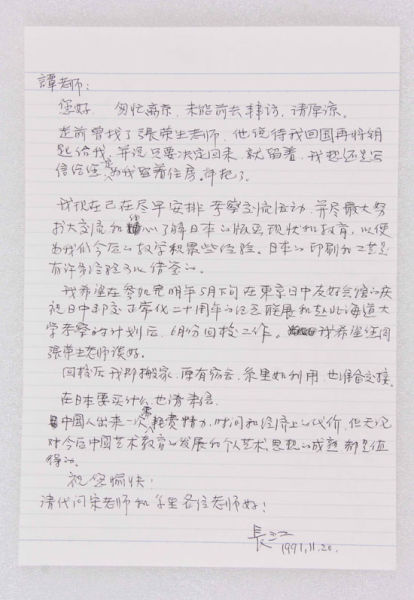 譚老师:
您好. 匆忙离京,未能前去拜访,请原谅。
走前曾找了張荣生老师,他说待我回国再将钥
匙给我,并说只要决定回来,就留着,我想还是写
信给您为我留着住房
我现在已在尽早安排考察交流活动,并尽最大努
力去交流和了解日本的版画现状和教育,以便
为我们今后的教学积累些经验。日本的印刷和工艺是
有许多经验可以借鉴的。
我希望在参加完明年5月下旬在東京日中友好会馆的庆
祝日中邦交正常化二十周年的纪念联展和赴北海道大
学考察的计划后,6月份回校工作。我希望您同
張荣生老师谈好。
回校后我即搬家,原有宿舍,系里如利用,也准备交接。
在日本要买什么,也请来信。
中国人出来一次耗费精力、时间和经济上的代价,但无论
对今后中国艺术教育的发展和个人艺术思想的成熟都是值
得的。
祝您愉快!
请代问宋老师和系里各位老师好!
長江
1991.11.20.